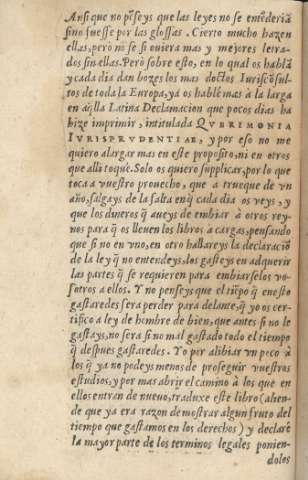 Ansi que no pẽseys que las leyes no se entẽderiã
sino fuesse por las glossas. Cierto mucho hazen
ellas, pero ni se si ouiera mas y mejores letra-
dos sin ellas. Pero sobre esto, en lo qual os hablã
y cada dia dan bozes los mas doctos Iuriscõsul-
tos de toda la Europa, ya os hablè mas à la larga
en aq̃lla Latina Declamacion que pocos dias ha
hize imprimir, intitulada QVERIMONIA
IVRISPRVDENTIAE, y por eso no me
quiero alargar mas en este proposito, ni en otros
que alli toquè. Solo os quiero supplicar, por lo que
toca a vuestro prouecho, que a trueque de vn
año, salgays de la falta en q̃ cada dia os veys, y
que los dineros q̃ aueys de embiar à otros rey-
nos para q̃ os lleuen los libros a cargas, pensando
que si no en vno, en otro hallareys la declaraciõ
de la ley q̃ no entendeys, los gasteys en adquerir
las partes q̃ se requieren para embiarselos vo-
sotros a ellos. Y no penseys que el tiẽpo q̃ en esto
gastaredes sera perder para delante, q̃ yo os cer-
tifico a ley de hombre de bien, que antes si no le
gastays, no sera si no mal gastado todo el tiempo
q̃ despues gastaredes. Y o por alibiar vn poco à
los q̃ ya no podeys menos de proseguir vuestros
estudios, y por mas abrir el camino à los que en
ellos entran de nueuo, traduxe este libro (allen-
de que ya era razon de mostrar algun fruto del
tiempo que gastamos en los derechos) y declarè
la mayor parte de los terminos legales ponien-
dolos